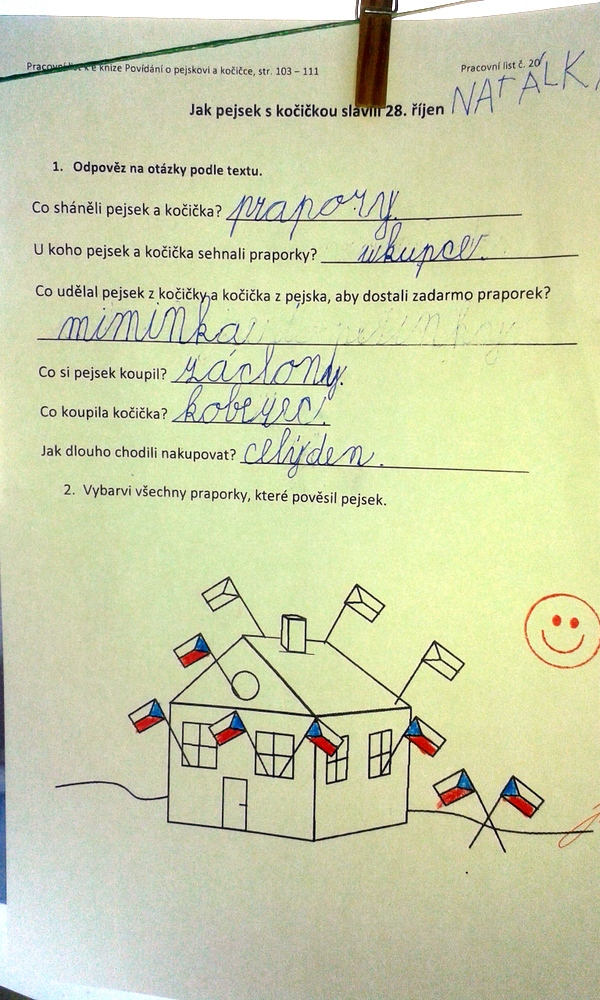 Pracovní list k e knize Povídání o pejskovi a kočičce, str. 103 – 111
Pracovní list č. 20
NATALK
Jak pejsek s kočičkou slavili 28. říjen
1. Odpověz na otázky podle textu.
Co sháněli pejsek a kočička? prapory.
U koho pejsek a kočička sehnali praporky? ukupce.
Co udělal pejsek z kočičky a kočička z pejska, aby dostali zadarmo praporek?
miminka
Co si pejsek koupil? záclony.
Co koupila kočička?
Jak dlouho chodili nakupovat? celýden.
2. Vybarvi všechny praporky, které pověsil pejsek.